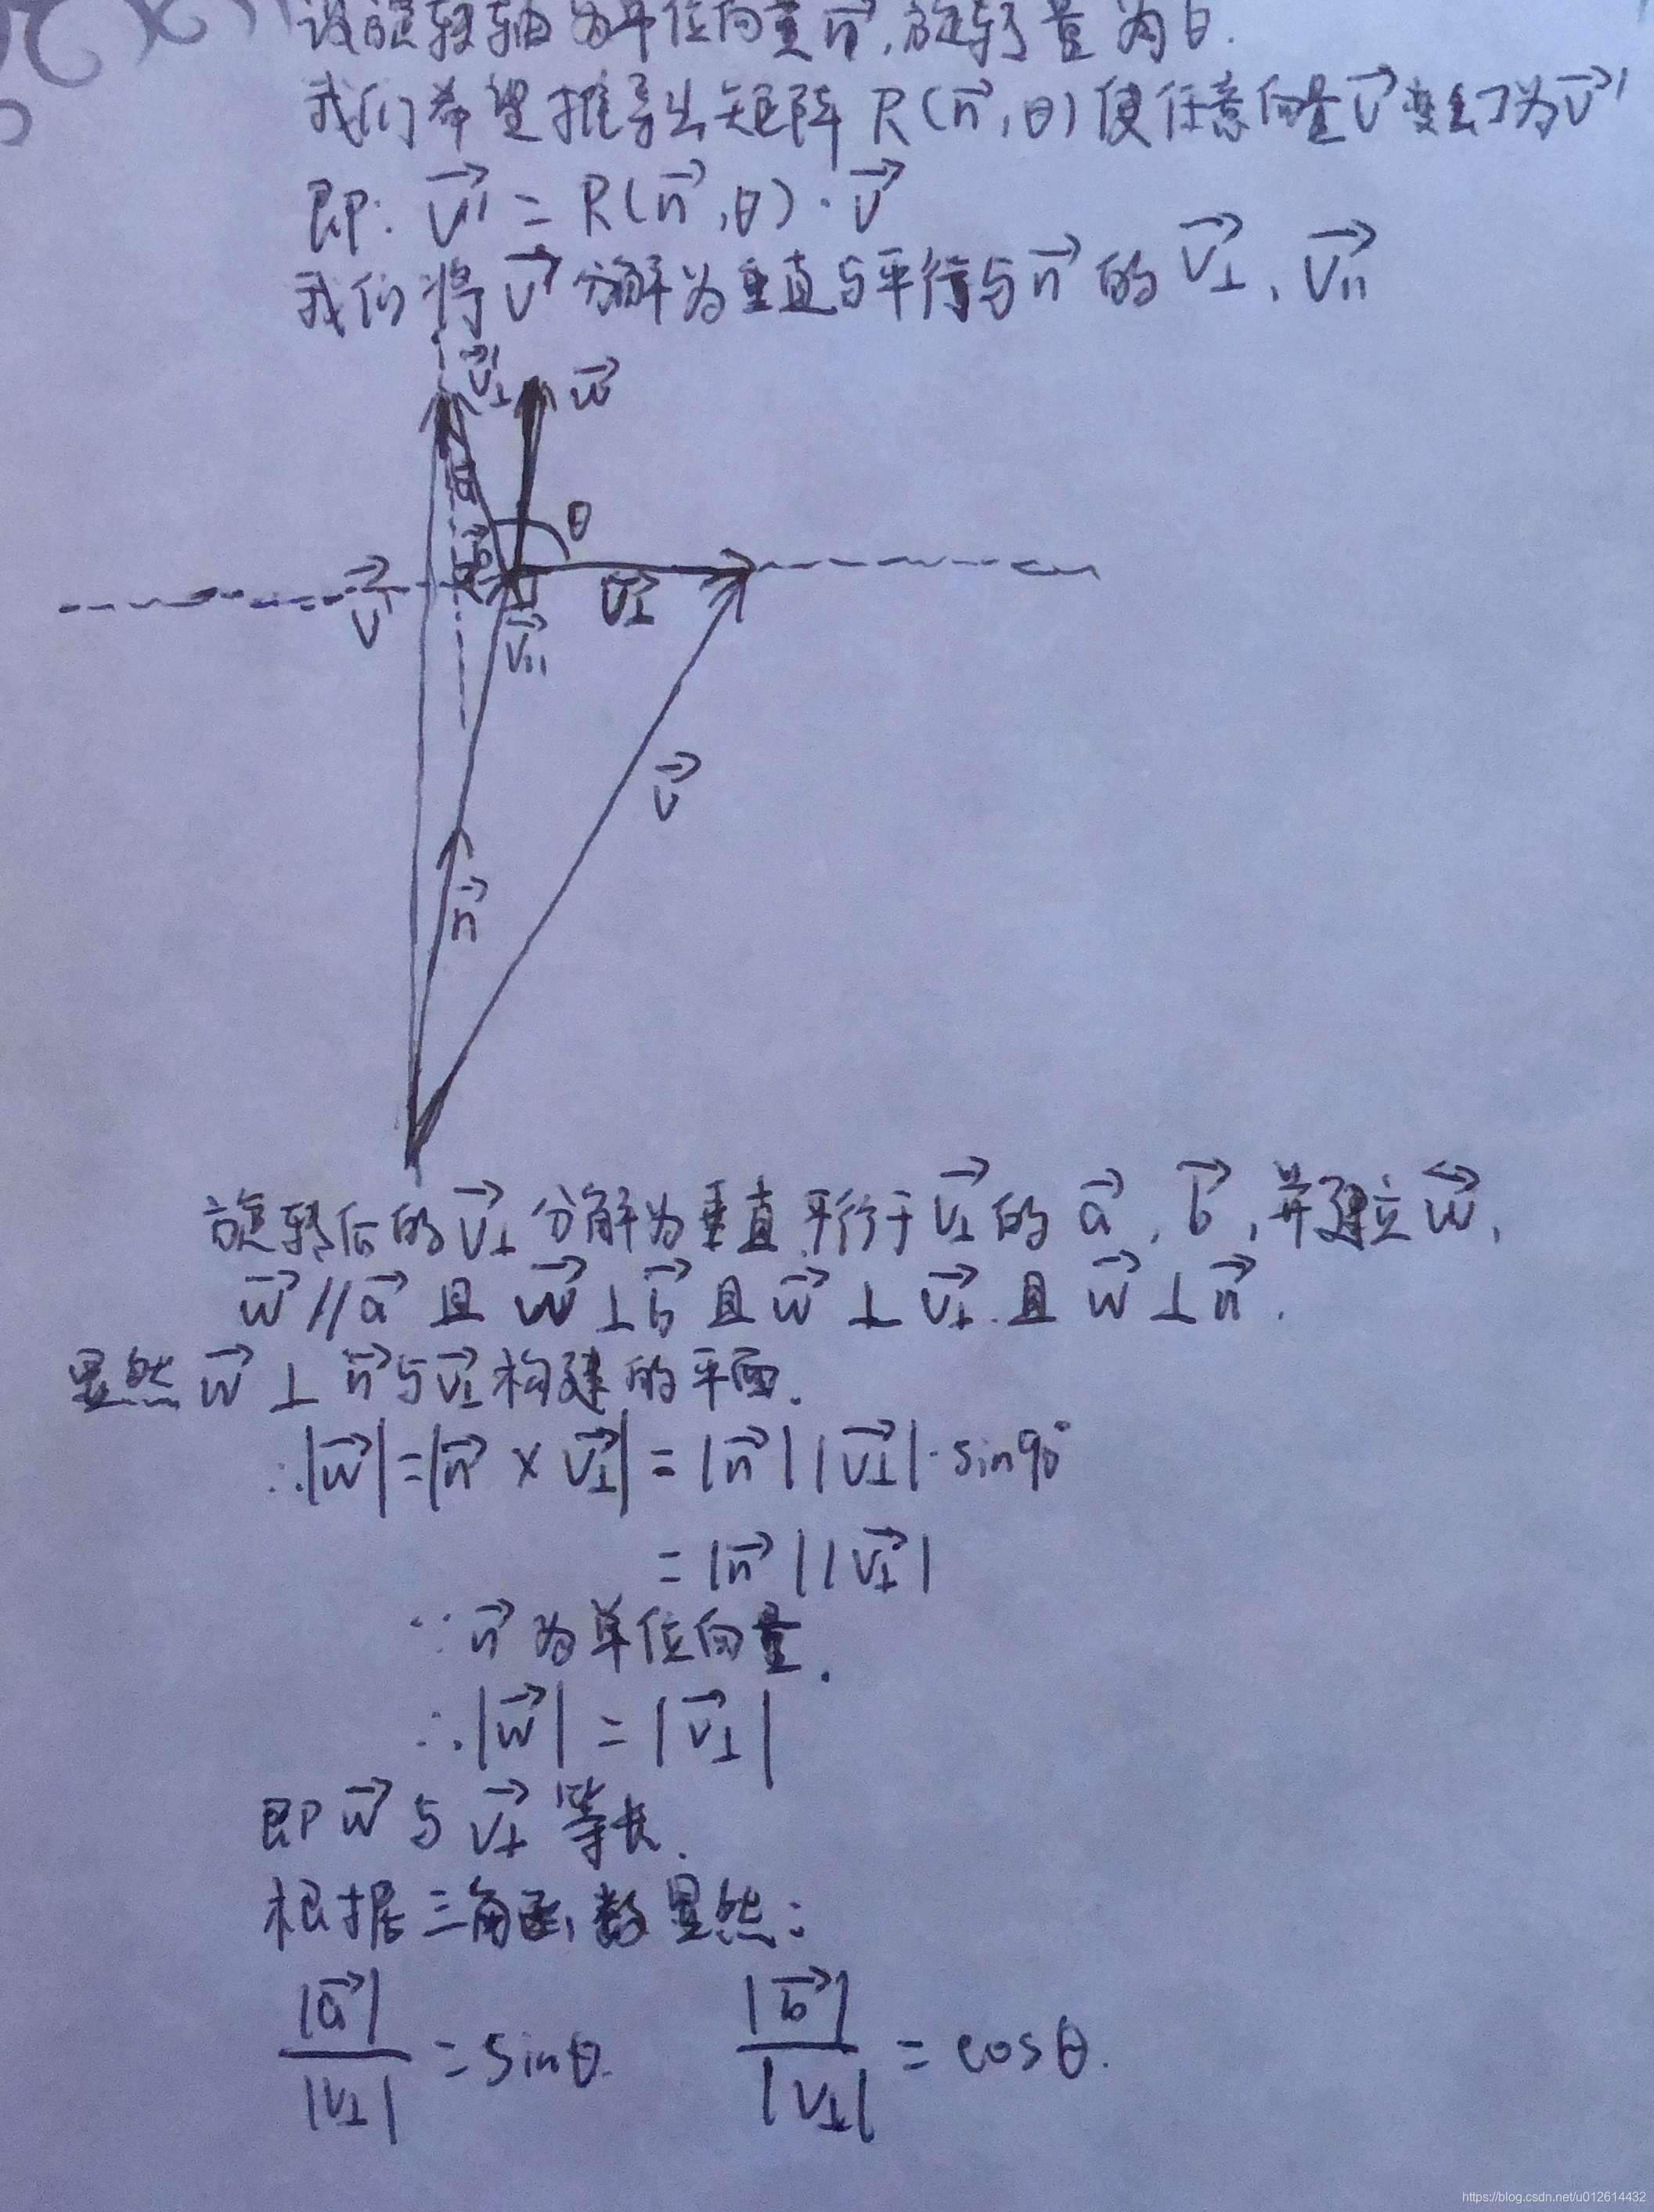 设旋转轴为单位向量n⃗,旋转量为θ.
我们希望推导出矩阵 R(n⃗,θ) 使任意向量v⃗变幻为v⃗'
即: v⃗' = R(n⃗,θ)·v⃗
我们将v⃗分解为垂直与平行与n⃗的 v⃗⊥、v⃗||
v⃗⊥'
w⃗
a⃗
θ
b⃗
v⃗'
v⃗⊥
v⃗||
v⃗
n⃗
旋转后的v⃗⊥分解为垂直.平行于v⃗⊥的 a⃗, b⃗,并建立w⃗,
w⃗//a⃗ 且 w⃗⊥b⃗ 且w⃗⊥v⃗⊥.且 w⃗⊥n⃗.
显然w⃗⊥n⃗与v⃗⊥构建的平面.
∴|w⃗|=|n⃗×v⃗⊥|=|n⃗||v⃗⊥|·sin90°
=|n⃗||v⃗⊥|
∵n⃗为单位向量.
∴|w⃗|=|v⃗⊥|
即w⃗与v⃗⊥等长.
根据三角函数显然:
|a⃗|/|v⊥|=sinθ. |b⃗|/|v⊥|=cosθ.
https://blog.csdn.net/u012614432